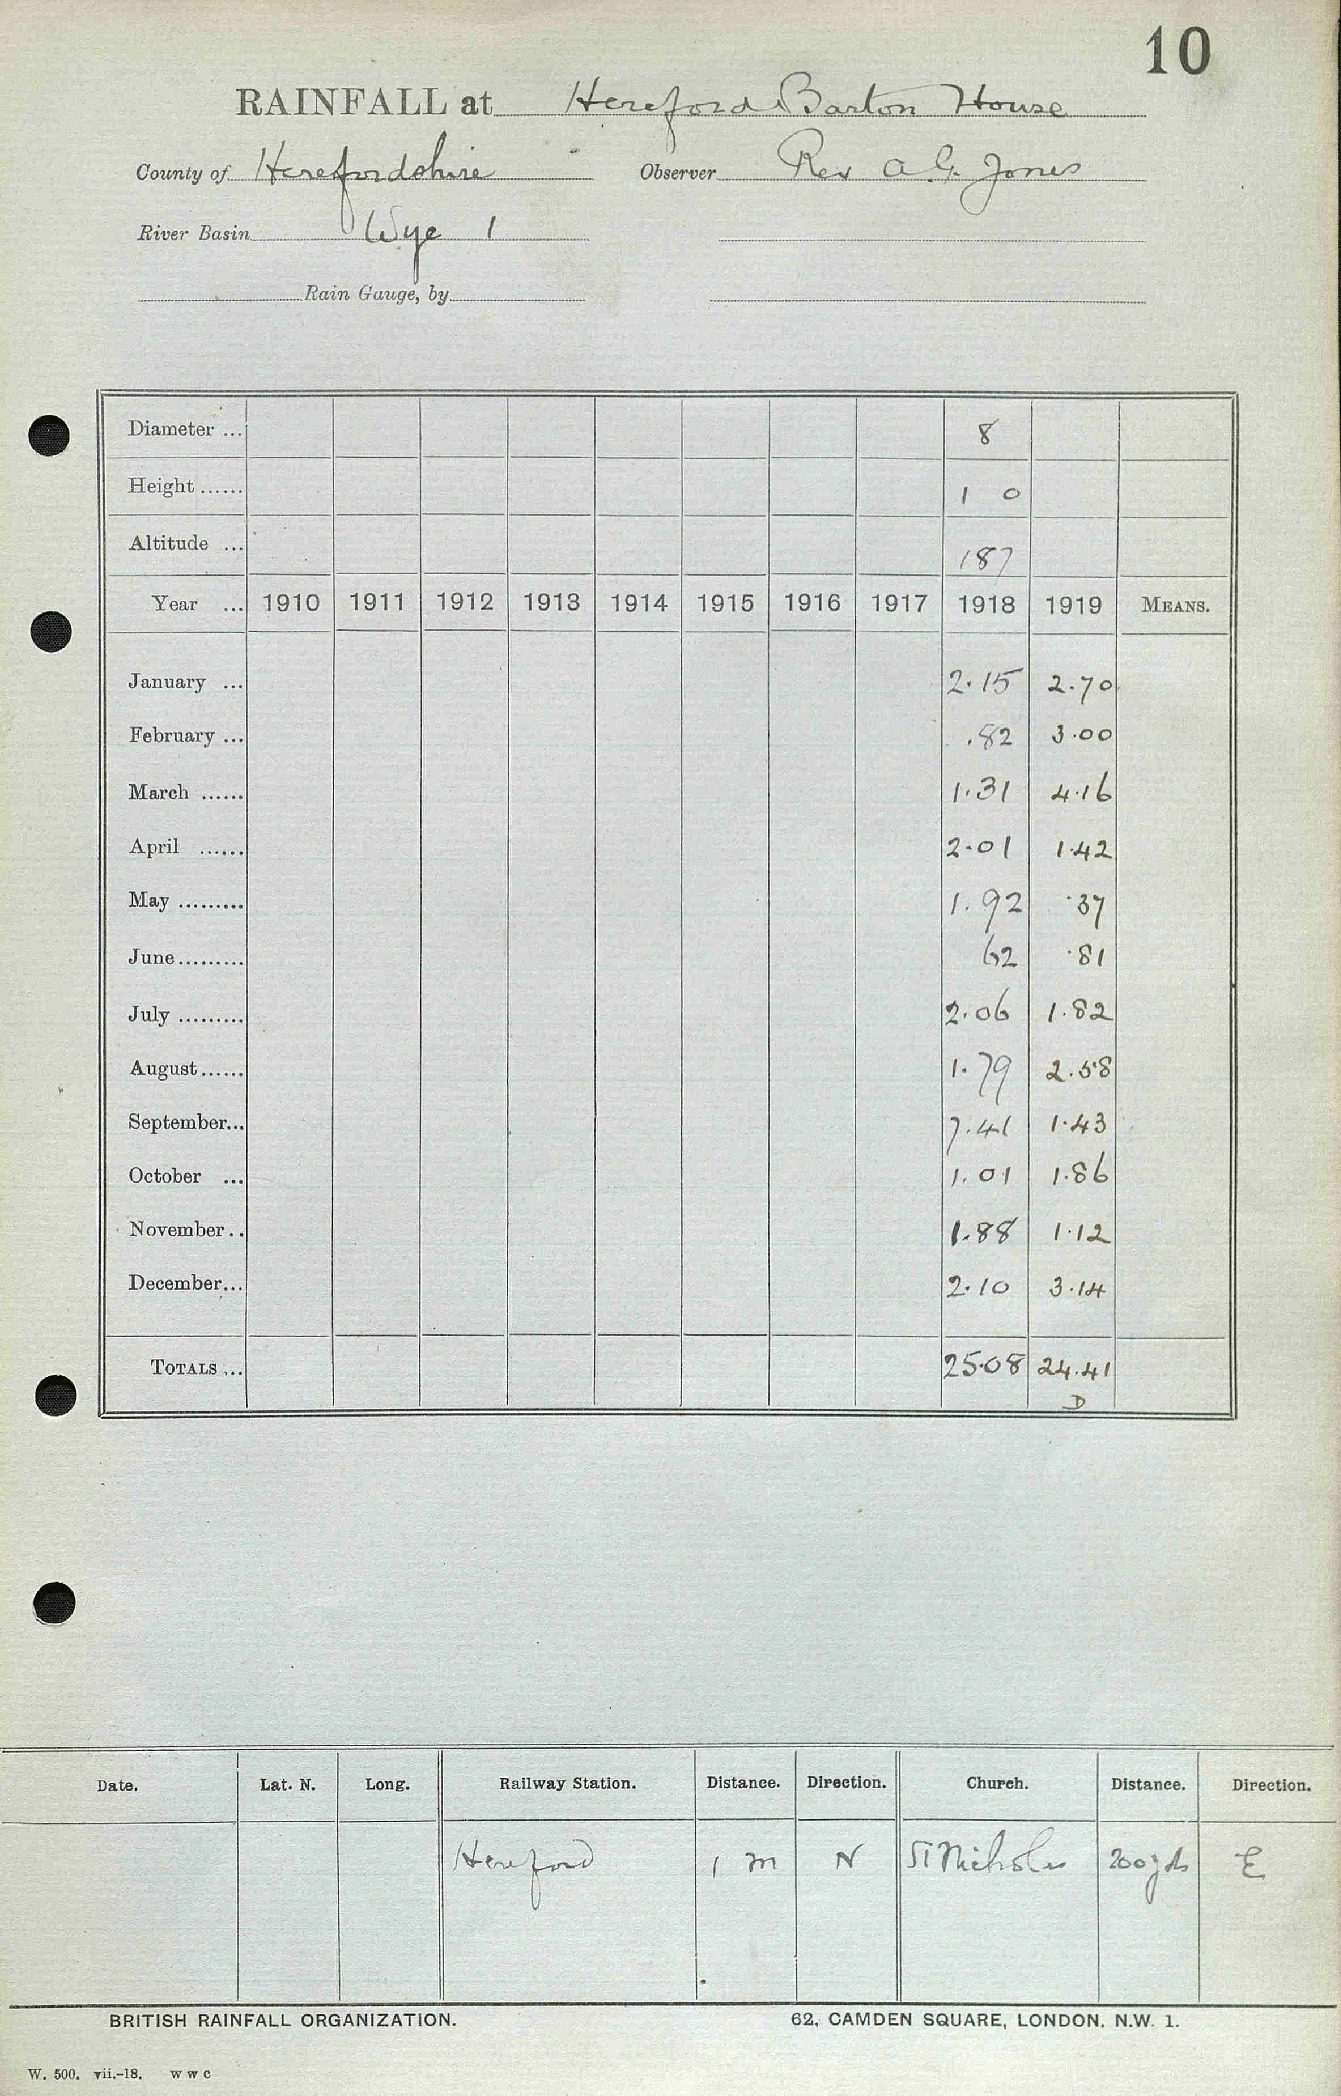 10
RAINFALL at Hereford Barton House
County of Herefordshire Observer Rev A. G. Jones
River Basin Wye 1
Rain Gauge, by
Diameter ... 8
Height ...... 1 0
Altitude ... 187
Year ... 1910 1911 1912 1913 1914 1915 1916 1917 1918 1919 MEANS.
January ... 2.15 2.70
February ... .82 3.00
March ...... 1.31 4.16
April ...... 2.01 1.42
May ......... 1.92 .37
June ......... 62 .81
July ......... 2.06 1.82
August ...... 1.79 2.58
September... 7.41 1.43
October ... 1.01 1.86
November .. 1.88 1.12
December... 2.10 3.14
TOTALS ... 25.08 24.41
D
Date. Lat. N. Long. Railway Station. Distance. Direction. Church. Distance. Direction.
Hereford 1 m N St Nicholas 200 yds E
BRITISH RAINFALL ORGANIZATION. 62, CAMDEN SQUARE, LONDON, N.W. 1.
W. 500. vii.-18. W W C